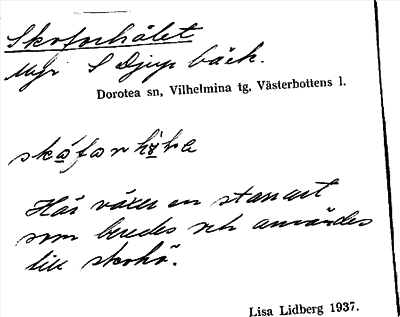 Skoforhålet
myr S Djup bäck.
Dorotea sn, Vilhelmina tg, Västerbottens l.
skåfarhòla
Här växer en starrart
som beredes och användes
till skohö.
Lisa Lidberg 1937.